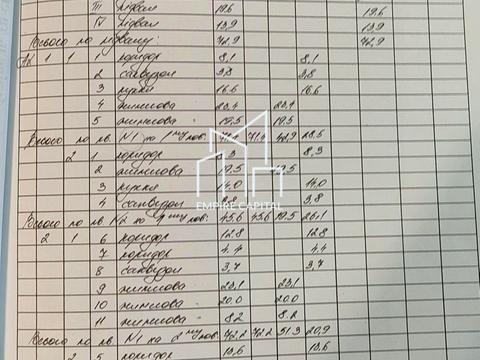 III підвал 19,6 19,6
IV підвал 13,9 13,9
Всього по підвалу: 72,9 72,9
1 1 1 коридор 8,1 8,1
2 санвузол 3,8
3 кухня 16,6 16,6
4 житлова 23,4 23,4
5 житлова 19,5 19,5
Всього по кв. N1 на 1му пов. 71,4 28,5
2 1 коридор 8,3 8,3
2 житлова 19,5 19,5
3 кухня 14,0 14,0
4 санвузол 3,8 3,8
EMPIRE CAPITAL
Всього по кв. N2 на 1му пов. 45,6 45,6 19,5 26,1
2 1 6 коридор 12,8 12,8
7 коридор 4,4 4,4
8 санвузол 3,7 3,7
9 житлова 23,1 23,1
10 житлова 20,0 20,0
11 житлова 8,2 8,2
Всього по кв. N1 на 2му пов. 72,2 72,2 51,3 20,9
2 5 коридор 13,6 13,6